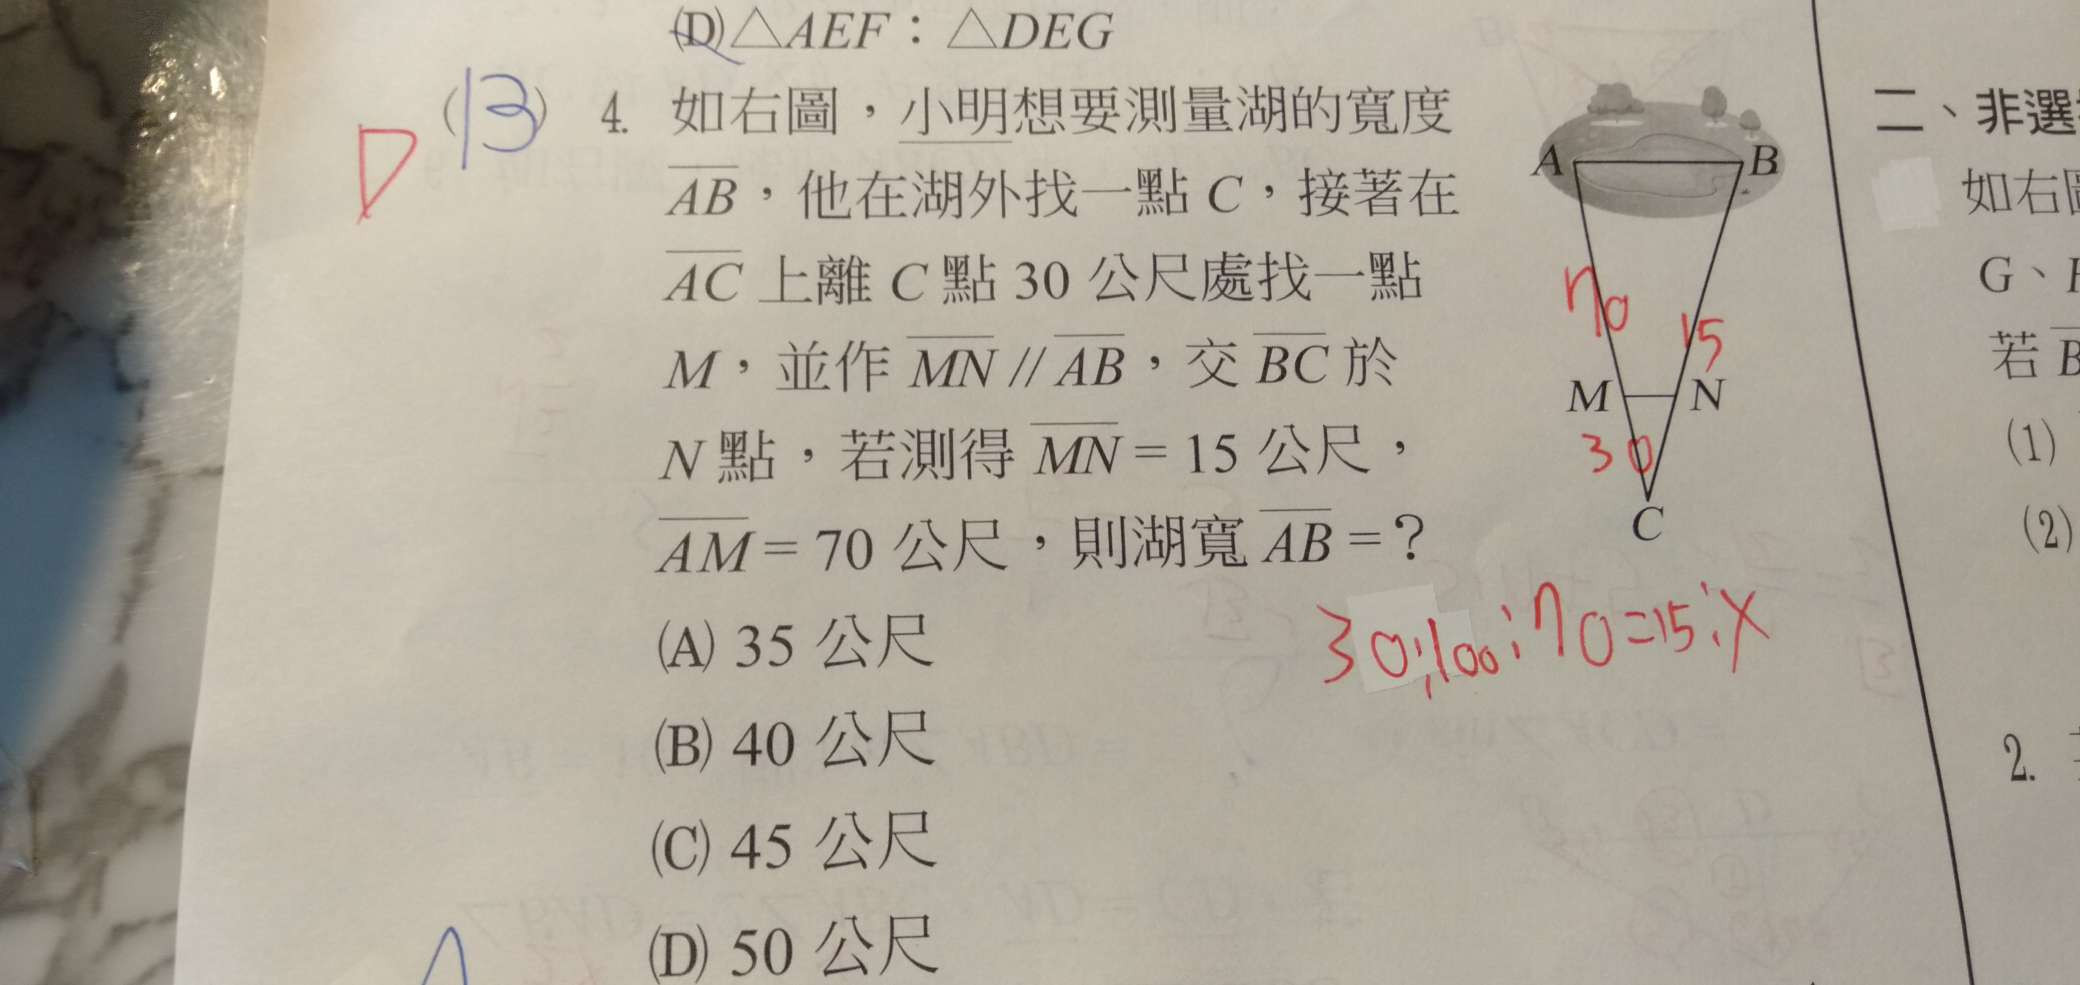 (D)△AEF：△DEG
D
(B) 4. 如右圖，小明想要測量湖的寬度
AB，他在湖外找一點 C，接著在
AC 上離 C 點 30 公尺處找一點
M，並作 MN // AB，交 BC 於
N 點，若測得 MN = 15 公尺，
AM = 70 公尺，則湖寬 AB = ？
(A) 35 公尺
(B) 40 公尺
(C) 45 公尺
(D) 50 公尺
A B
70 15
M N
30
C
30:100:70=15:x
二、非選
如右
G、
若
(1)
(2)
2.